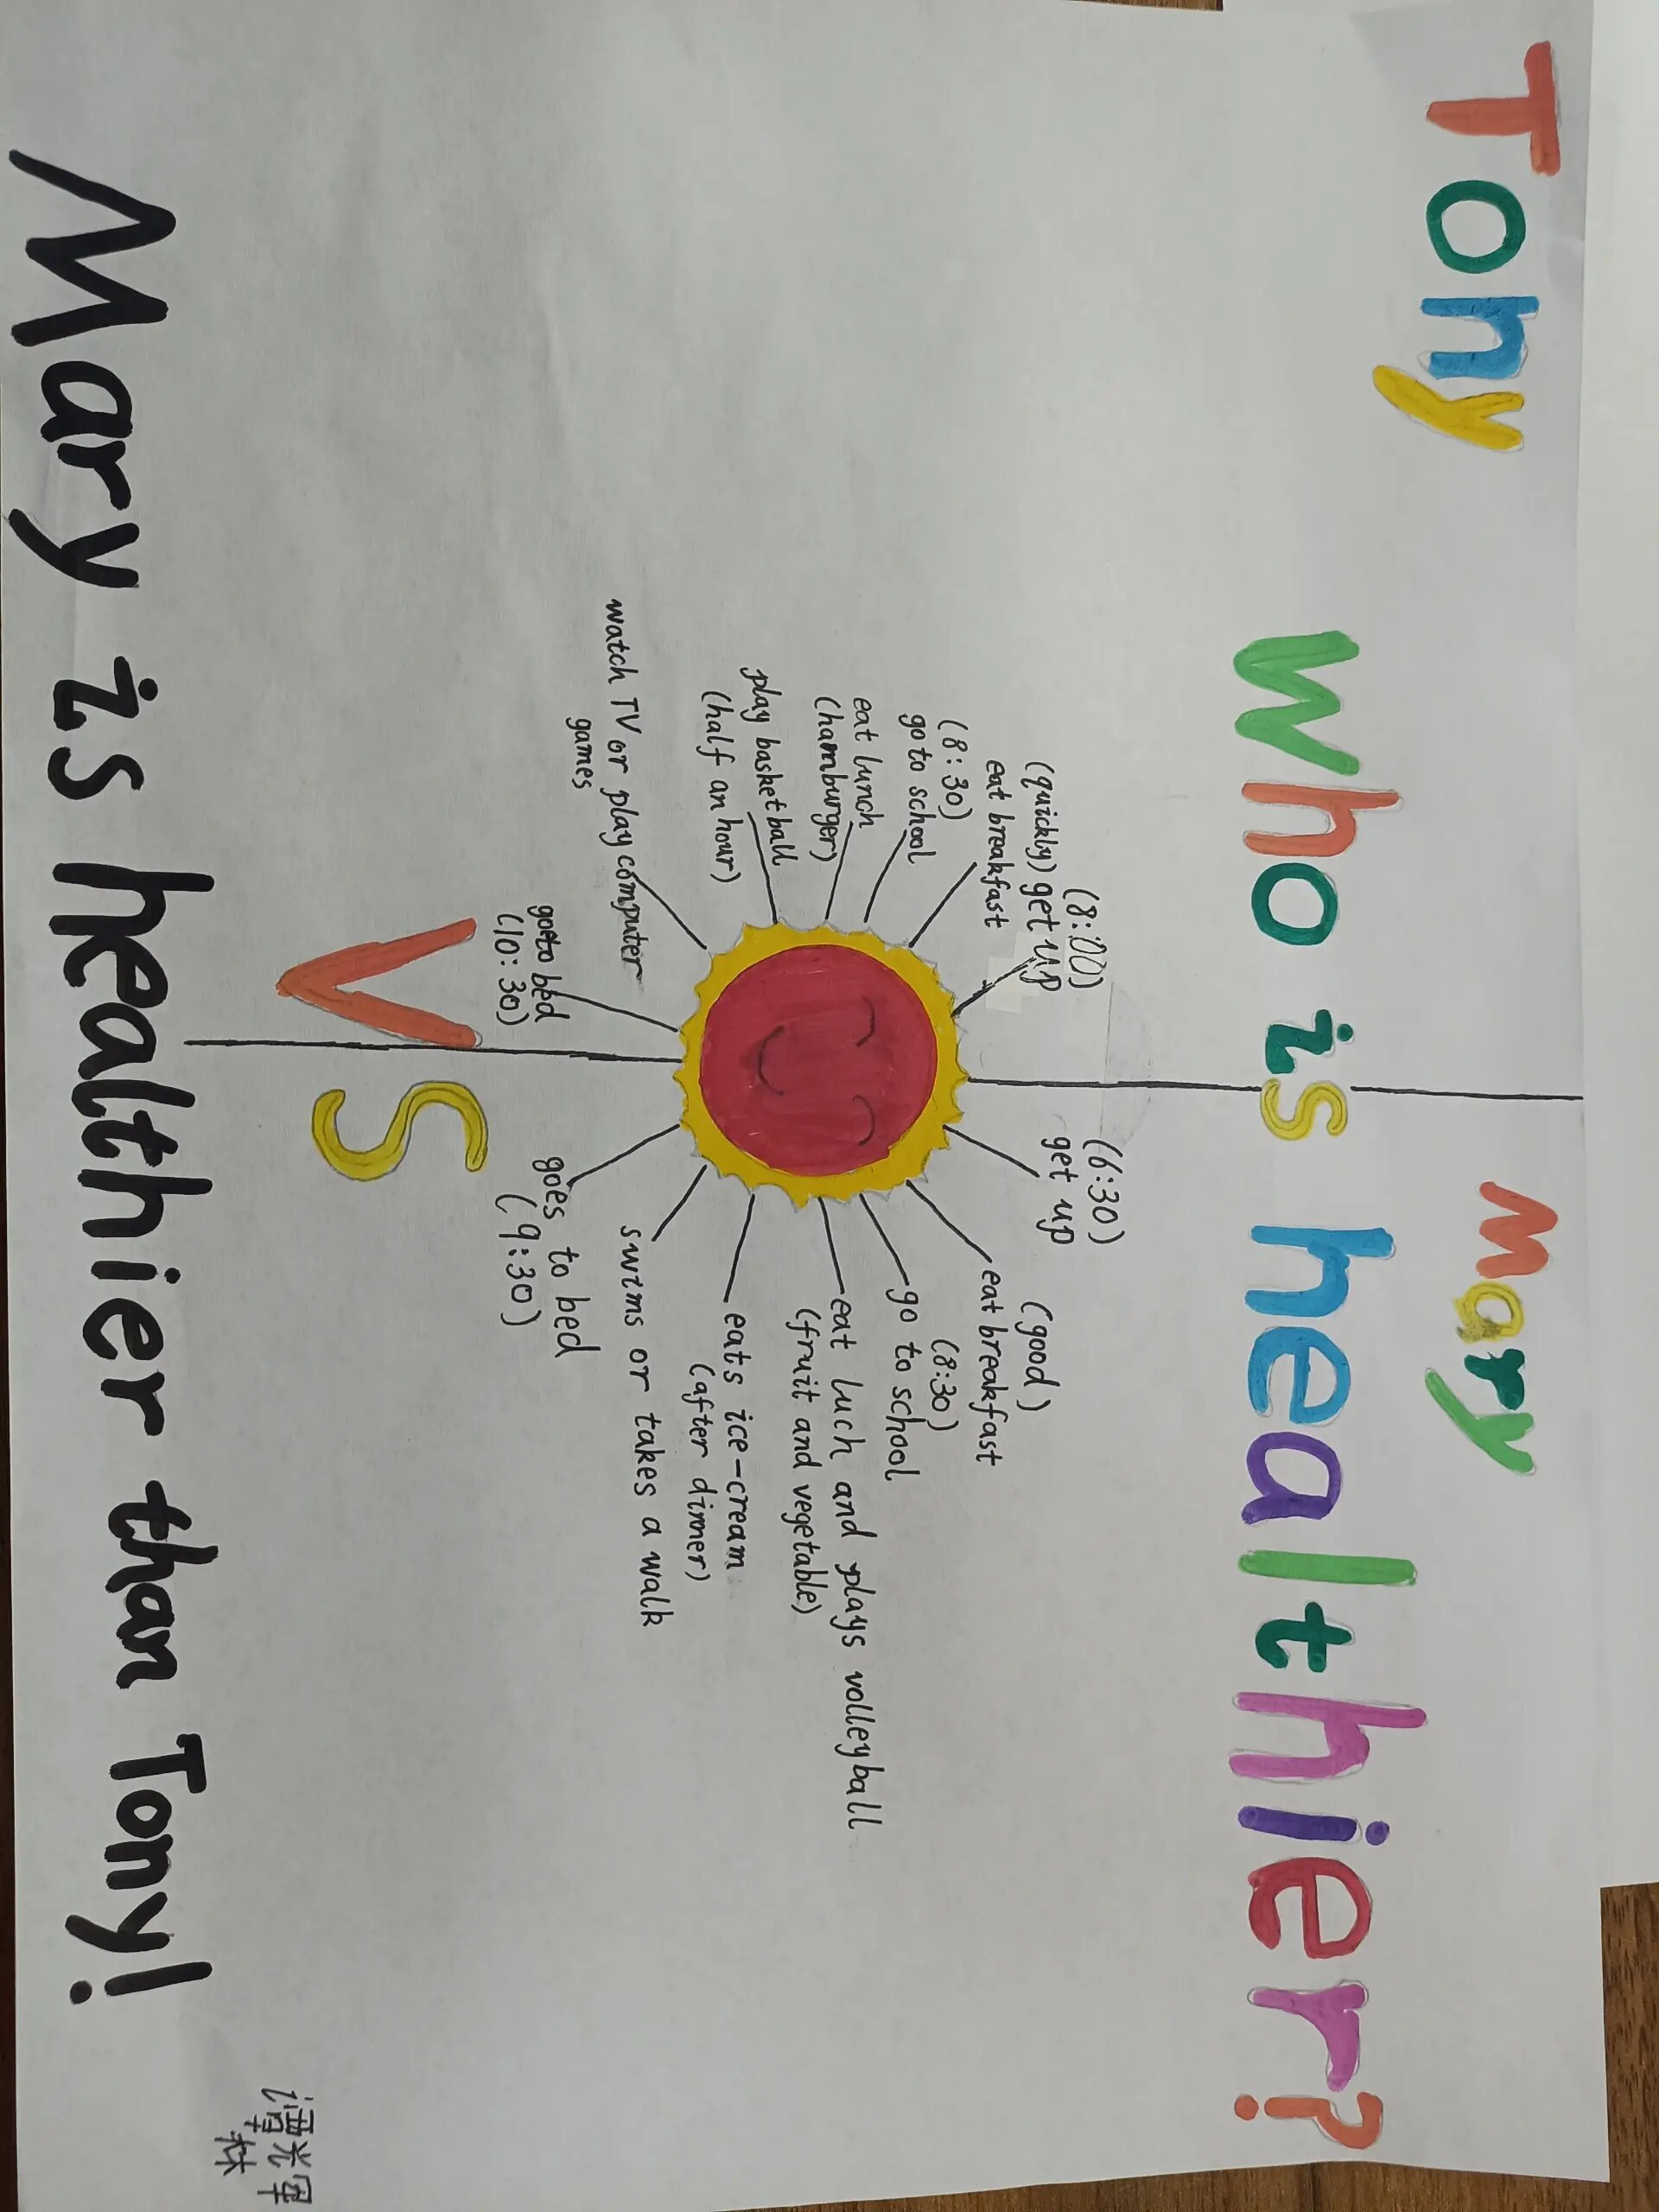 Tony
Mary
Who is healthier?
(8:00)
(quickly) get up
eat breakfast
(8:30)
go to school
eat lunch
(hamburger)
play basketball
(half an hour)
watch TV or play computer
games
goto bed
(10:30)
(6:30)
get up
(good)
eat breakfast
(8:30)
go to school
eat luch and plays volleyball
(fruit and vegetable)
eats ice-cream
(after dinner)
swims or takes a walk
goes to bed
(9:30)
VS
Mary is healthier than Tony!